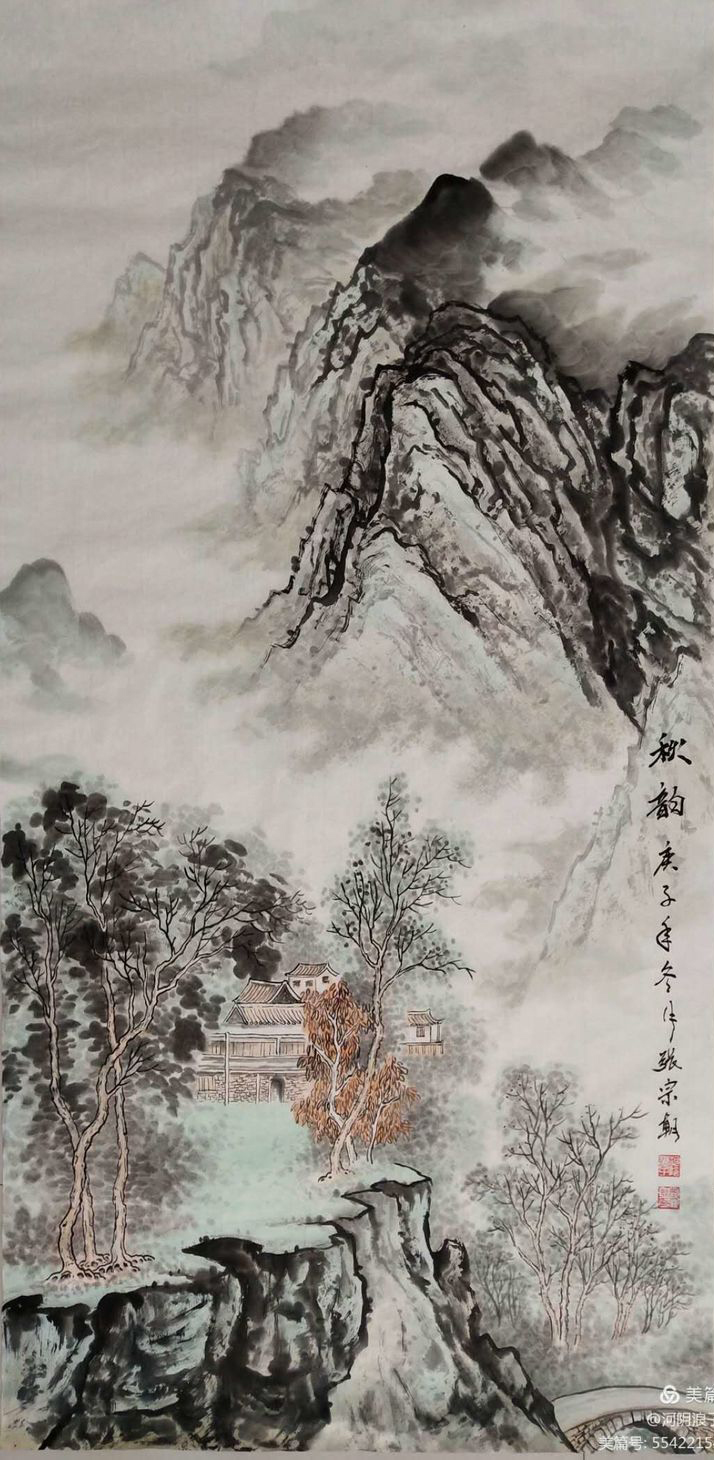 秋韵 庚子年冬月 张宗朝
美篇
@河阴浪子
美篇号: 5542215